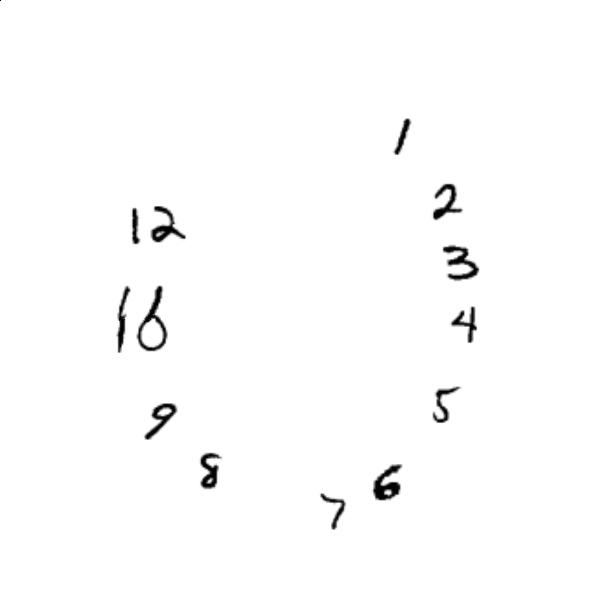 1
2
3
4
5
6
7
8
9
10
12